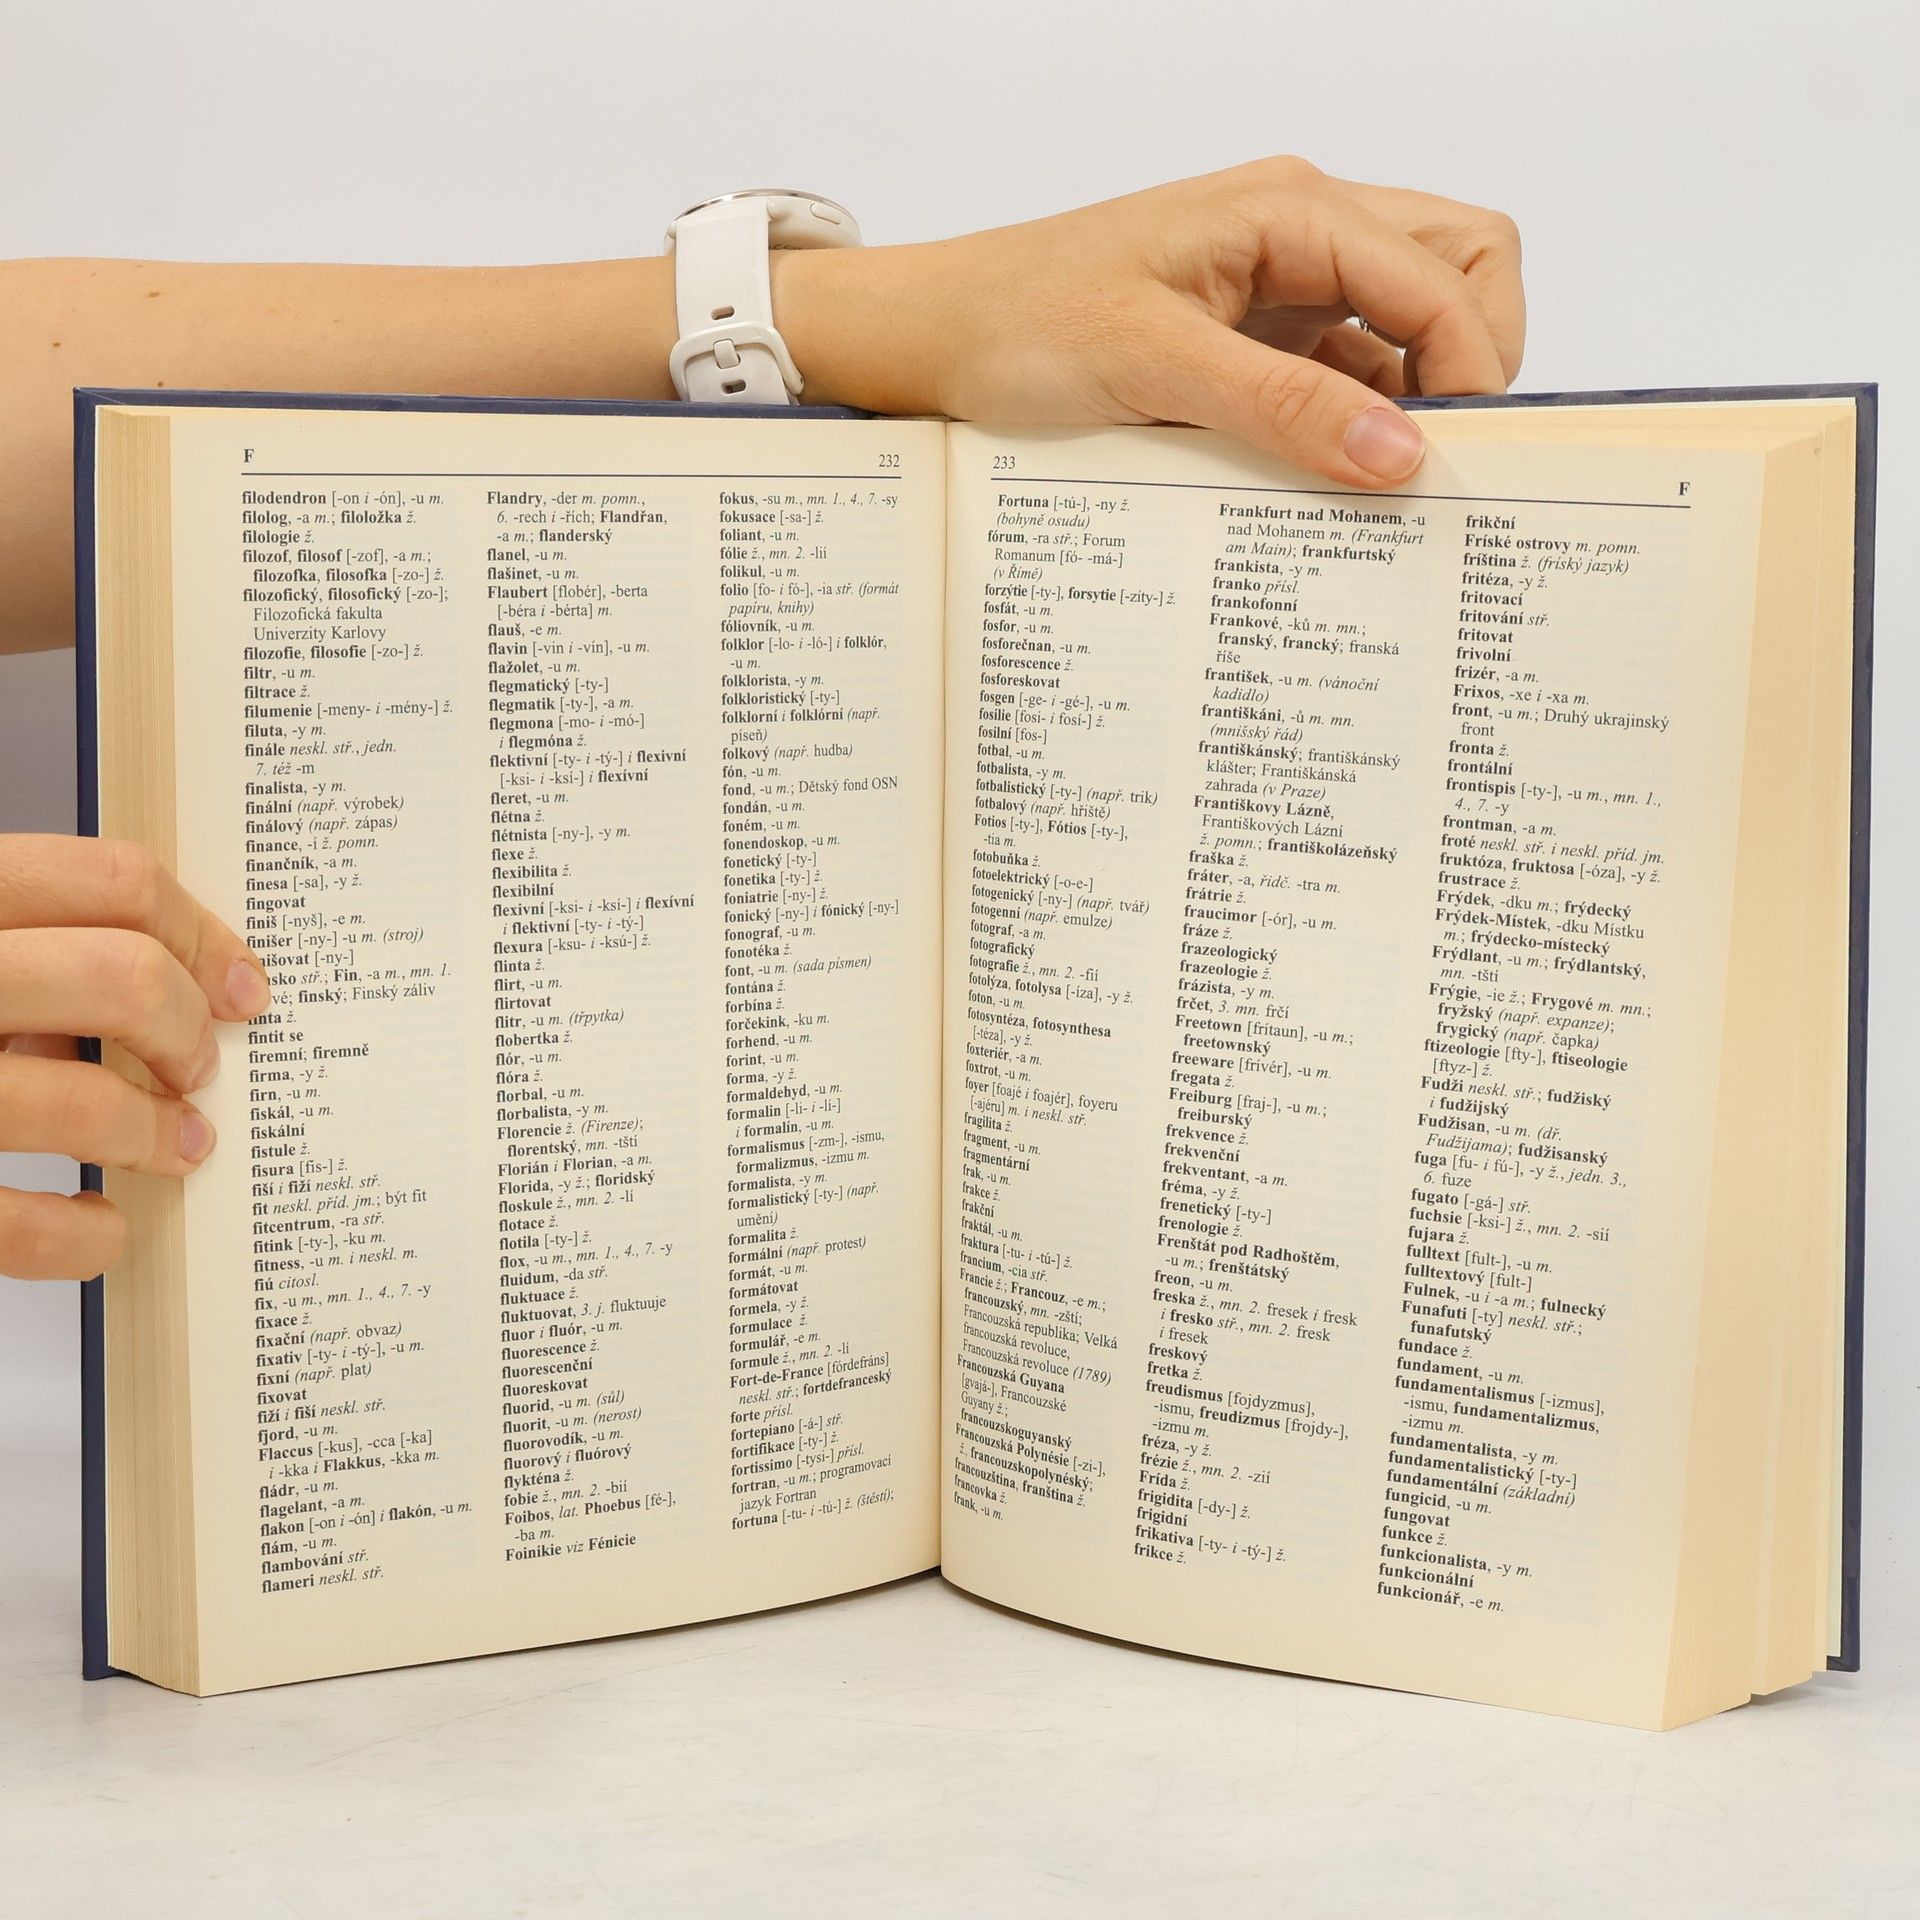 F
232
filodendron [-on i -ón], -u m.
filolog, -a m.; filoložka ž.
filologie ž.
filozof, filosof [-zof], -a m.;
filozofka, filosofka [-zo-] ž.
filozofický, filosofický [-zo-];
Filozofická fakulta
Univerzity Karlovy
filozofie, filosofie [-zo-] ž.
filtr, -u m.
filtrace ž.
filumenie [-meny- i -mény-] ž.
filuta, -y m.
finále neskl. stř., jedn.
7. též -m
finalista, -y m.
finální (např. výrobek)
finálový (např. zápas)
finance, -í ž. pomn.
finančník, -a m.
finesa [-sa], -y ž.
fingovat
finiš [-nyš], -e m.
finišer [-ny-] -u m. (stroj)
nišovat [-ny-]
nsko stř.; Fin, -a m., mn. 1.
vé; finský; Finský záliv
finta ž.
fintit se
firemní; firemně
firma, -y ž.
firn, -u m.
fiskál, -u m.
fiskální
fistule ž.
fisura [fis-] ž.
fiší i fiží neskl. stř.
fit neskl. příd. jm.; být fit
fitcentrum, -ra stř.
fitink [-ty-], -ku m.
fitness, -u m. i neskl. m.
fiú citosl.
fix, -u m., mn. 1., 4., 7. -y
fixace ž.
fixační (např. obvaz)
fixativ [-ty- i -tý-], -u m.
fixní (např. plat)
fixovat
fiží i fiší neskl. stř.
fjord, -u m.
Flaccus [-kus], -cca [-ka]
i -kka i Flakkus, -kka m.
fládr, -u m.
flagelant, -a m.
flakon [-on i -ón] i flakón, -u m.
flám, -u m.
flambování stř.
flameri neskl. stř.
Flandry, -der m. pomn.,
6. -rech i -řích; Flandřan,
-a m.; flanderský
flanel, -u m.
flašinet, -u m.
Flaubert [flobér], -berta
[-béra i -bérta] m.
flauš, -e m.
flavin [-vin i -vín], -u m.
flažolet, -u m.
flegmatický [-ty-]
flegmatik [-ty-], -a m.
flegmona [-mo- i -mó-]
i flegmóna ž.
flektivní [-ty- i -tý-] i flexivní
[-ksi- i -ksí-] i flexívní
fleret, -u m.
flétna ž.
flétnista [-ny-], -y m.
flexe ž.
flexibilita ž.
flexibilní
flexivní [-ksi- i -ksí-] i flexívní
i flektivní [-ty- i -tý-]
flexura [-ksu- i -ksú-] ž.
flinta ž.
flirt, -u m.
flirtovat
flitr, -u m. (třpytka)
flobertka ž.
flór, -u m.
flóra ž.
florbal, -u m.
florbalista, -y m.
Florencie ž. (Firenze);
florentský, mn. -tští
Florián i Florian, -a m.
Florida, -y ž.; floridský
floskule ž., mn. 2. -lí
flotace ž.
flotila [-ty-] ž.
flox, -u m., mn. 1., 4., 7. -y
fluidum, -da stř.
fluktuace ž.
fluktuovat, 3. j. fluktuuje
fluor i fluór, -u m.
fluorescence ž.
fluorescenční
fluoreskovat
fluorid, -u m. (sůl)
fluorit, -u m. (nerost)
fluorovodík, -u m.
fluorový i fluórový
flykténa ž.
fobie ž., mn. 2. -bií
Foibos, lat. Phoebus [fé-],
-ba m.
Foinikie viz Fénicie
fokus, -su m., mn. 1., 4., 7. -sy
fokusace [-sa-] ž.
foliant, -u m.
fólie ž., mn. 2. -lií
folikul, -u m.
folio [fo- i fó-], -ia stř. (formát
papíru, knihy)
fóliovník, -u m.
folklor [-lo- i -ló-] i folklór,
-u m.
folklorista, -y m.
folkloristický [-ty-]
folklorní i folklórní (např.
píseň)
folkový (např. hudba)
fón, -u m.
fond, -u m.; Dětský fond OSN
fondán, -u m.
foném, -u m.
fonendoskop, -u m.
fonetický [-ty-]
fonetika [-ty-] ž.
foniatrie [-ny-] ž.
fonický [-ny-] i fónický [-ny-]
fonograf, -u m.
fonotéka ž.
font, -u m. (sada písmen)
fontána ž.
forbína ž.
forčekink, -ku m.
forhend, -u m.
forint, -u m.
forma, -y ž.
formaldehyd, -u m.
formalin [-li- i -lí-]
i formalín, -u m.
formalismus [-zm-], -ismu,
formalizmus, -izmu m.
formalista, -y m.
formalistický [-ty-] (např.
umění)
formalita ž.
formální (např. protest)
formát, -u m.
formátovat
formela, -y ž.
formulace ž.
formulář, -e m.
formule ž., mn. 2. -lí
Fort-de-France [fórdefráns]
neskl. stř.; fortdefranceský
forte přísl.
fortepiano [-á-] stř.
fortifikace [-ty-] ž.
fortissimo [-tysi-] přísl.
fortran, -u m.; programovací
jazyk Fortran
fortuna [-tu- i -tú-] ž. (štěstí);
233
F
Fortuna [-tú-], -ny ž.
(bohyně osudu)
fórum, -ra stř.; Forum
Romanum [fó- -má-]
(v Římě)
forzýtie [-ty-], forsytie [-zíty-] ž.
fosfát, -u m.
fosfor, -u m.
fosforečnan, -u m.
fosforescence ž.
fosforeskovat
fosgen [-ge- i -gé-], -u m.
fosilie [fosi- i fosí-] ž.
fosilní [fos-]
fotbal, -u m.
fotbalista, -y m.
fotbalistický [-ty-] (např. trik)
fotbalový (např. hřiště)
Fotios [-ty-], Fótios [-ty-],
-tia m.
fotobuňka ž.
fotoelektrický [-o-e-]
fotogenický [-ny-] (např. tvář)
fotogenní (např. emulze)
fotograf, -a m.
fotografický
fotografie ž., mn. 2. -fií
fotolýza, fotolysa [-íza], -y ž.
foton, -u m.
fotosyntéza, fotosynthesa
[-téza], -y ž.
foxteriér, -a m.
foxtrot, -u m.
foyer [foajé i foajér], foyeru
[-ajéru] m. i neskl. stř.
fragilita ž.
fragment, -u m.
fragmentární
frak, -u m.
frakce ž.
frakční
fraktál, -u m.
fraktura [-tu- i -tú-] ž.
francium, -cia stř.
Francie ž.; Francouz, -e m.;
francouzský, mn. -zští;
Francouzská republika; Velká
francouzská revoluce,
Francouzská revoluce (1789)
Francouzská Guyana
[gvajá-], Francouzské
Guyany ž.;
francouzskoguyanský
Francouzská Polynésie [-zi-],
ž. francouzskopolynéský;
francouzština, franština ž.
francovka ž.
frank, -u m.
Frankfurt nad Mohanem, -u
nad Mohanem m. (Frankfurt
am Main); frankfurtský
frankista, -y m.
franko přísl.
frankofonní
Frankové, -ků m. mn.;
franský, francký; franská
říše
františek, -u m. (vánoční
kadidlo)
františkáni, -ů m. mn.
(mnišský řád)
františkánský; františkánský
klášter; Františkánská
zahrada (v Praze)
Františkovy Lázně,
Františkových Lázní
ž. pomn.; františkolázeňský
fraška ž.
fráter, -a, řidč. -tra m.
frátrie ž.
fraucimor [-ór], -u m.
fráze ž.
frazeologický
frazeologie ž.
frázista, -y m.
frčet, 3. mn. frčí
Freetown [frítaun], -u m.;
freetownský
freeware [frívér], -u m.
fregata ž.
Freiburg [fraj-], -u m.;
freiburský
frekvence ž.
frekvenční
frekventant, -a m.
fréma, -y ž.
frenetický [-ty-]
frenologie ž.
Frenštát pod Radhoštěm,
-u m.; frenštátský
freon, -u m.
freska ž., mn. 2. fresek i fresk
i fresko stř., mn. 2. fresk
i fresek
freskový
fretka ž.
freudismus [fojdyzmus],
-ismu, freudizmus [frojdy-],
-izmu m.
fréza, -y ž.
frézie ž., mn. 2. -zií
Frída ž.
frigidita [-dy-] ž.
frigidní
frikativa [-ty- i -tý-] ž.
frikce ž.
frikční
Fríské ostrovy m. pomn.
fríština ž. (fríský jazyk)
fritéza, -y ž.
fritovací
fritování stř.
fritovat
frivolní
frizér, -a m.
Frixos, -xe i -xa m.
front, -u m.; Druhý ukrajinský
front
fronta ž.
frontální
frontispis [-ty-], -u m., mn. 1.,
4., 7. -y
frontman, -a m.
froté neskl. stř. i neskl. příd. jm.
fruktóza, fruktosa [-óza], -y ž.
frustrace ž.
Frýdek, -dku m.; frýdecký
Frýdek-Místek, -dku Místku
m.; frýdecko-místecký
Frýdlant, -u m.; frýdlantský,
mn. -tští
Frýgie, -ie ž.; Frygové m. mn.;
fryžský (např. expanze);
frygický (např. čapka)
ftizeologie [fty-], ftiseologie
[ftyz-] ž.
Fudži neskl. stř.; fudžiský
i fudžijský
Fudžisan, -u m. (dř.
Fudžijama); fudžisanský
fuga [fu- i fú-], -y ž., jedn. 3.,
6. fuze
fugato [-gá-] stř.
fuchsie [-ksi-] ž., mn. 2. -sií
fujara ž.
fulltext [fult-], -u m.
fulltextový [fult-]
Fulnek, -u i -a m.; fulnecký
Funafuti [-ty] neskl. stř.;
funafutský
fundace ž.
fundament, -u m.
fundamentalismus [-izmus],
-ismu, fundamentalizmus,
-izmu m.
fundamentalista, -y m.
fundamentalistický [-ty-]
fundamentální (základní)
fungicid, -u m.
fungovat
funkce ž.
funkcionalista, -y m.
funkcionální
funkcionář, -e m.